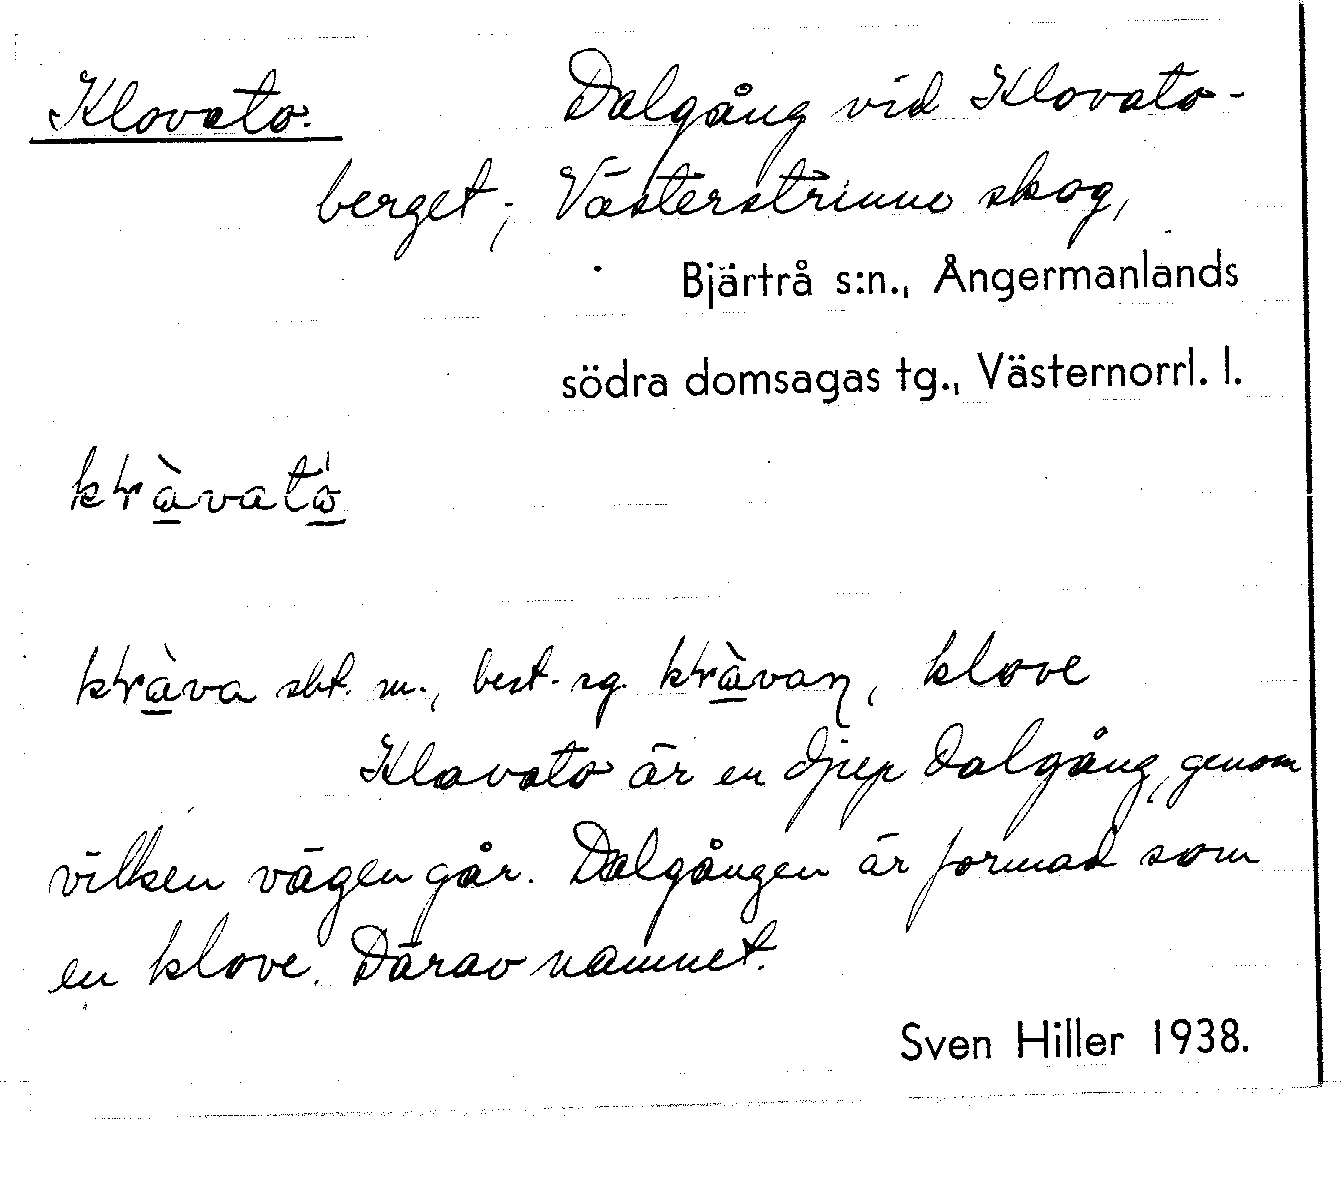 Klovato. Dalgång vid Klovato-
berget; Västerstrinne skog,
Bjärtrå s:n., Ångermanlands
södra domsagas tg., Västernorrl. l.
sbt. m., best. sg. klove
Klovato är en djup dalgång, genom
vilken vägen går. Dalgången är formad som
en klove. Därav namnet.
Sven Hiller 1938.